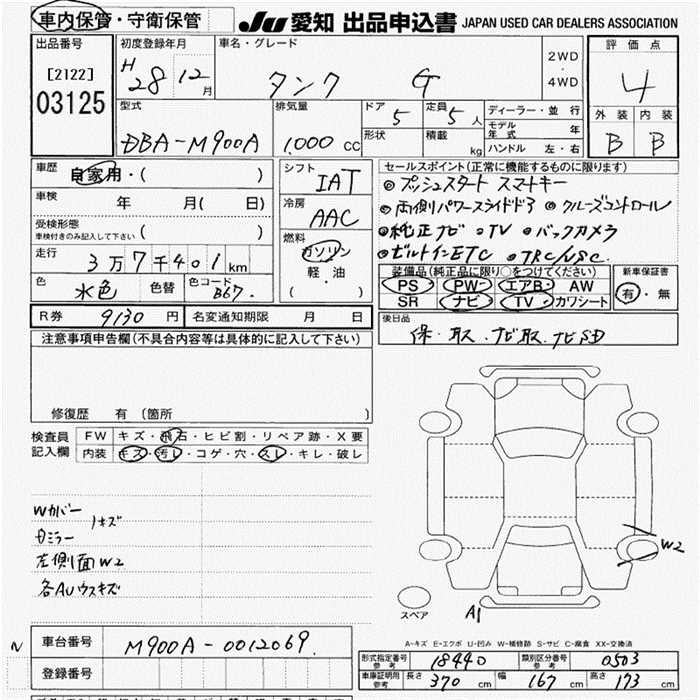 車内保管・守衛保管
JU 愛知 出品申込書 JAPAN USED CAR DEALERS ASSOCIATION
出品番号
[2122]
03125
初度登録年月
H 28 年 12 月
車名・グレード
タンク G
2WD
・
4WD
評価点
4
外装 内装
B B
型式
DBA-M900A
排気量
1,000 CC
ドア 5
定員 5 人
形状
積載 kg
ディーラー・並行
モデル年式 年
ハンドル 左・右
車歴 自家用・( )
車検 年 月( 日)
受検形態
車検付きのみ記入して下さい ( )
走行
3万7千401km
色 水色
色替
色コード B67.
シフト
IAT
冷房
AAC
燃料
ガソリン
軽・油
( )
セールスポイント(正常に機能するものに限ります)
◎プッシュスタート スマートキー
◎両側パワースライドドア ◎クルーズコントロール
◎純正ナビ ◎TV ◎バックカメラ
◎ビルトインETC ◎TRC/VSC.
装備品(純正品に限り○をつけてください)
PS PW エアB AW
SR ナビ TV カワシート
新車保証書
有・無
R券 9130 円
名変通知期限 月 日
後日品
保・取・ナビ取・ナビSD
注意事項申告欄(不具合内容等は具体的に記入して下さい)
修復歴 有(箇所 )
検査員記入欄
FW キズ・飛石・ヒビ割・リペア跡・X要
内装 キズ・汚レ・コゲ・穴・スレ・キレ・破レ
Wカバー
ミラー
1キズ
左側面W2
各AUウスキズ
W2
A1
スペア
A-キズ E-エクボ U-凹み W-補修跡 S-サビ C-腐食 XX-交換済
N
車台番号 M900A-0012069.
登録番号
形式指定番号 参考 18440
類別区分番号 参考 0503
車庫証明用 参考 長さ 370 cm 幅 167 cm 高さ 173 cm